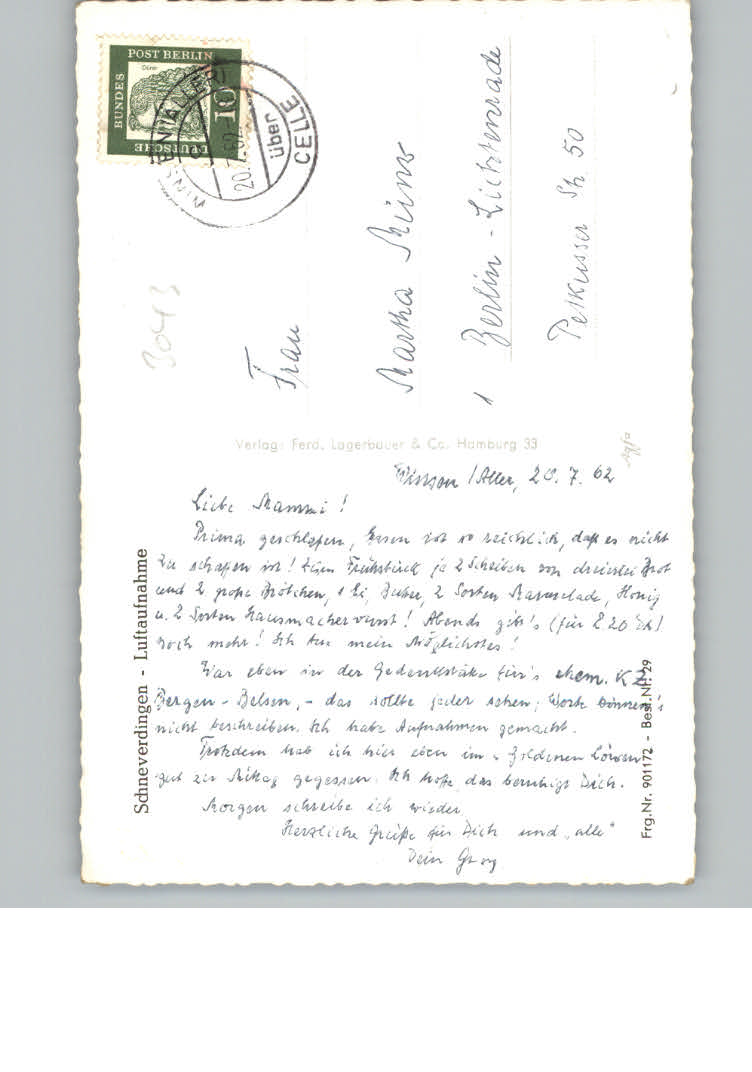 DEUTSCHE BUNDES POST BERLIN
Dürer
10
WINSEN (ALLER)
über
CELLE
20.7.62
3043
Frau
Martha
1 Berlin - Lichtenrade
Petkusser Str. 50
Verlag: Ferd. Lagerbauer & Co. Hamburg 33
Agfa
Schneverdingen - Luftaufnahme
Frg.Nr. 901172 - Best.Nr. 29
Winsen / Aller, 20. 7. 62
Liebe Mammi!
Prima geschlafen, Essen ist so reichlich, daß es nicht
zu schaffen ist! Zum Frühstück je 2 Scheiben von dreierlei Brot
und 2 große Brötchen, 1 Ei, Butter, 2 Sorten Marmelade, Honig
u. 2 Sorten Hausmacherwurst! Abends gibt's (für 2,20 DM)
noch mehr! Ich tue mein Möglichstes!
War eben in der Gedenkstätte für's ehem. KZ
Bergen-Belsen, - das sollte jeder sehen; Worte können's
nicht beschreiben. Ich habe Aufnahmen gemacht.
Trotzdem hab ich hier eben im "Goldenen Löwen"
gut zu Mittag gegessen. Ich hoffe, das beruhigt Dich.
Morgen schreibe ich wieder.
Herzliche Grüße für Dich und "alle"
Dein Georg